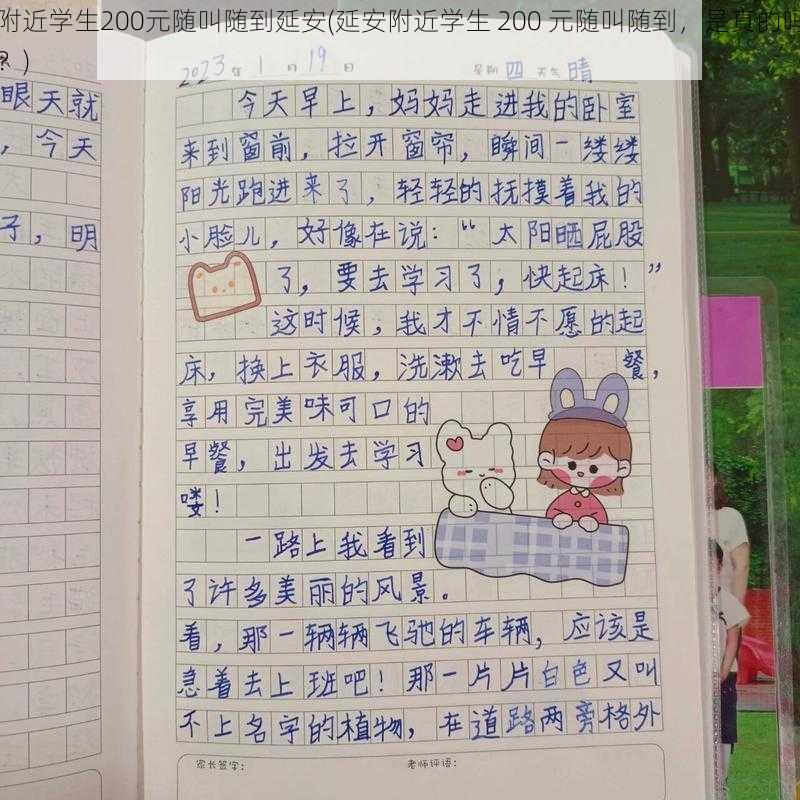 附近学生200元随叫随到延安(延安附近学生 200 元随叫随到，是真的吗
？)
2023年1月19日 星期四 天气晴
眼天就
，今天
子，明
今天早上，妈妈走进我的卧室
来到窗前，拉开窗帘，瞬间一缕缕
阳光跑进来了，轻轻的抚摸着我的
小脸儿，好像在说：“太阳晒屁股
了，要去学习了，快起床！”
这时候，我才不情不愿的起
床，换上衣服，洗漱去吃早餐，
享用完美味可口的
早餐，出发去学习
喽！
一路上我看到
了许多美丽的风景。
看，那一辆辆飞驰的车辆，应该是
急着去上班吧！那一片片白色又叫
不上名字的植物，在道路两旁格外
家长签字： 老师评语：